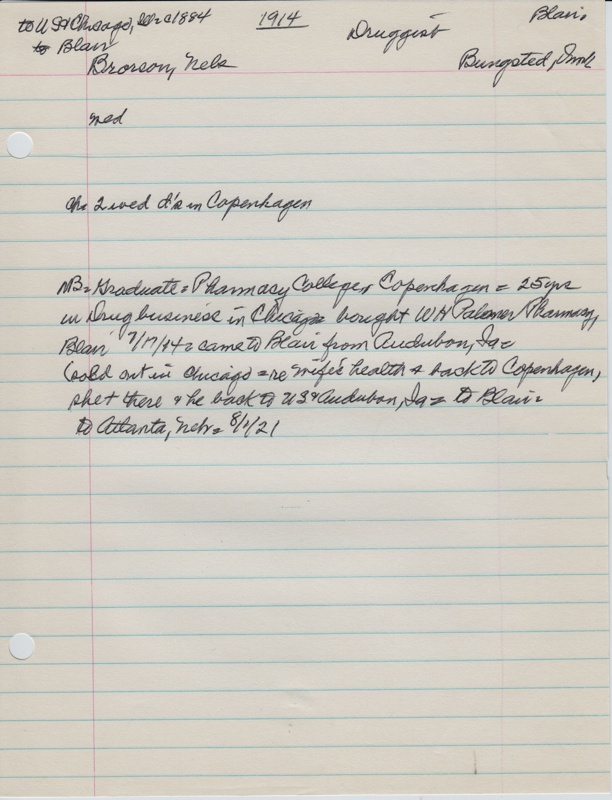 to US & Chicago, Ill c1884 1914 Druggist Blair,
to Blair
Brorson, Nels Bungsted, Dmk
med
ch = 2 wed d's in Copenhagen
NB = Graduate = Pharmacy College, Copenhagen = 25 yrs
in Drug business in Chicago = bought WH Palamer Pharmacy,
Blair 7/17/14 = came to Blair from Audubon, Ia =
(sold out in Chicago = re wife's health & back to Copenhagen,
she + there & he back to US & Audubon, Ia = to Blair =
to Atlanta, Nebr = 8/1/21